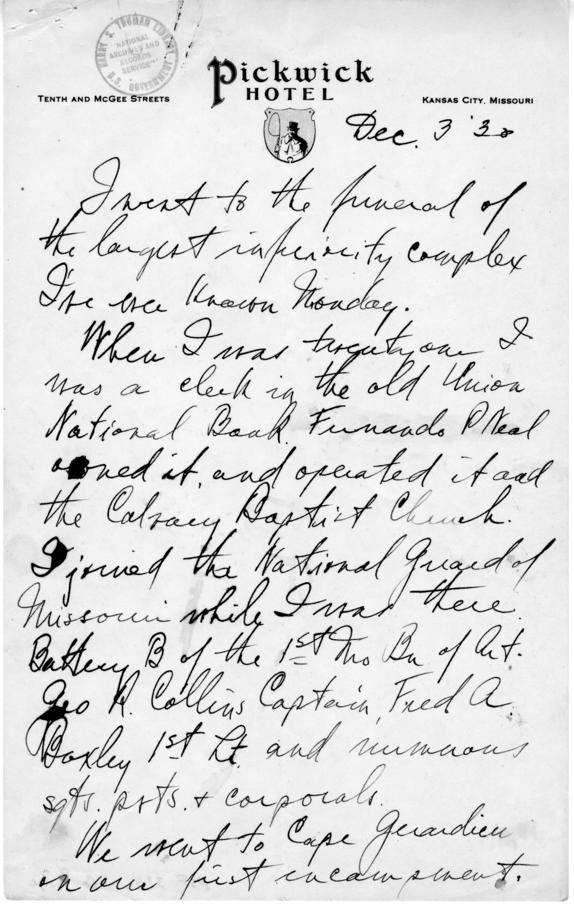 HARRY S. TRUMAN LIBRARY
"NATIONAL
ARCHIVES AND
RECORDS
SERVICE"
U.S. GOVERNMENT
Pickwick
HOTEL
TENTH AND MCGEE STREETS
KANSAS CITY, MISSOURI
Dec. 3 '30
I went to the funeral of
the largest inferiority complex
I've ever known Monday.
When I was twenty one I
was a clerk in the old Union
National Bank. Fernando P. Neal
owned it, and operated it and
the Calvary Baptist Church.
I joined the National Guard of
Missouri while I was there.
Battery B of the 1st Mo Bn of Art.
Geo R. Collins Captain, Fred A.
Boxley 1st Lt. and numerous
sgts. pvts. + corporals.
We went to Cape Gerardieu
on our first encampment.